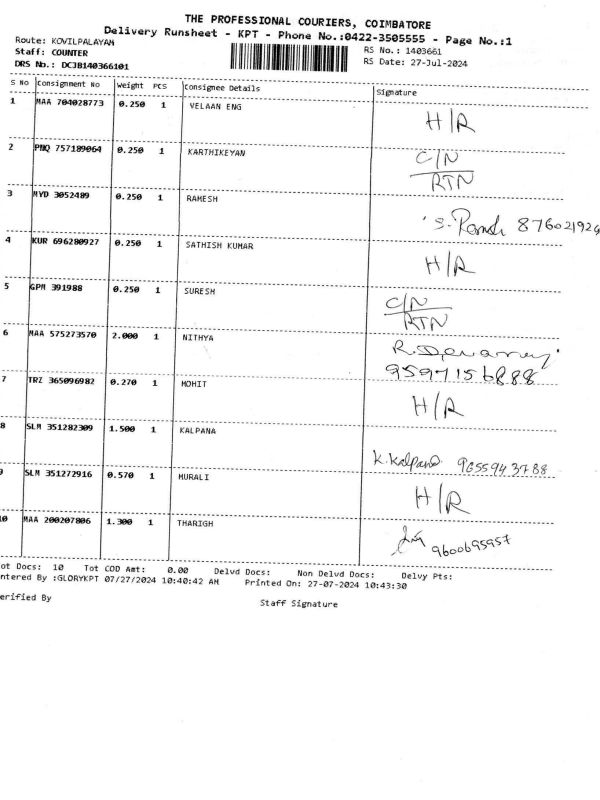 THE PROFESSIONAL COURIERS, COIMBATORE
Delivery Runsheet - KPT - Phone No.:0422-3505555 - Page No.:1
Route: KOVILPALAYAM
RS No.: 1403661
Staff: COUNTER
RS Date: 27-Jul-2024
DRS No.: DCJB140366101
S No Consignment No Weight PCS Consignee Details Signature
1 MAA 704028773 0.250 1 VELAAN ENG H/R
2 PNQ 757189064 0.250 1 KARTHIKEYAN C/N
RTN
3 MYD 3052489 0.250 1 RAMESH S. 876021926
4 KUR 696280927 0.250 1 SATHISH KUMAR H/R
5 GPM 391988 0.250 1 SURESH C/N
RTN
6 MAA 575273570 2.000 1 NITHYA
9597156888
7 TRZ 365096982 0.270 1 MOHIT H/R
8 SLM 351282309 1.500 1 KALPANA K. Kalpana 9655943788
SLM 351272916 0.570 1 MURALI H/R
10 MAA 200207806 1.300 1 THARIGH 9600695957
ot Docs: 10 Tot COD Amt: 0.00 Delvd Docs: Non Delvd Docs: Delvy Pts:
ntered By :GLORYKPT 07/27/2024 10:40:42 AM Printed On: 27-07-2024 10:43:30
erified By
Staff Signature